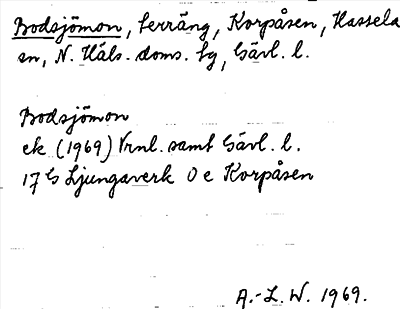 Bodsjömon, terräng, Korpåsen, Hassela
sn, N. Häls. doms. tg, Gävl. l.
Bodsjömon
ek (1969) Vrnl. samt Gävl. l.
17 G Ljungaverk O e Korpåsen
A.-L. W. 1969.